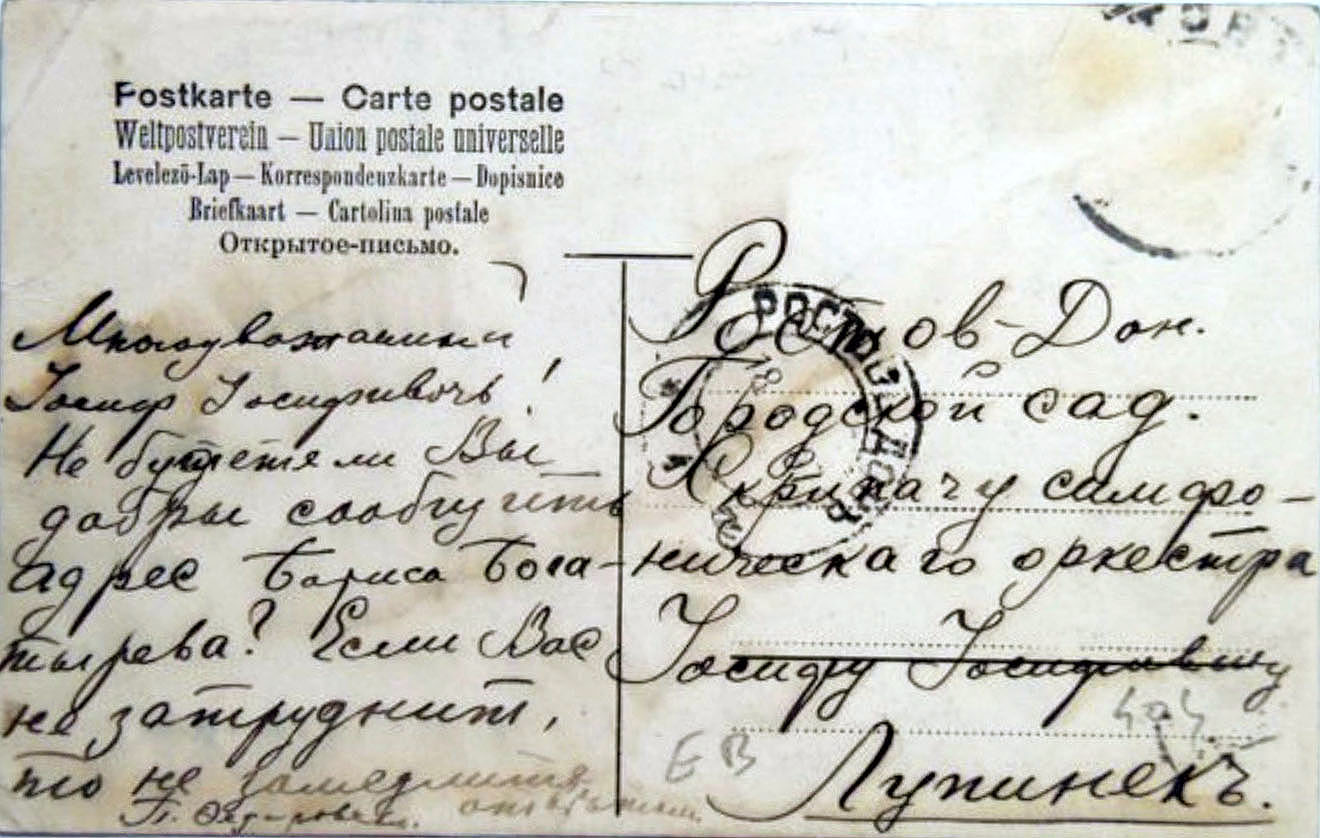 Postkarte — Carte postale
Weltpostverein — Union postale universelle
Levelező-Lap — Korrespondenzkarte — Dopisnice
Briefkaart — Cartolina postale
Открытое-письмо.
Многоуважаемый
Іосиф Іосифовичъ!
Не будете ли Вы
добры сообщить
адрес Бориса Бога-
тырева? Если Вас
не затруднит,
то не замедлите
ответом.
Ростов-Дон.
Городской сад.
Скрипачу симфо-
ническаго оркестра
Іосифу Іосифовичу
Лупинекъ.
ЕВ
РОСТОВЪ ДОНЪ